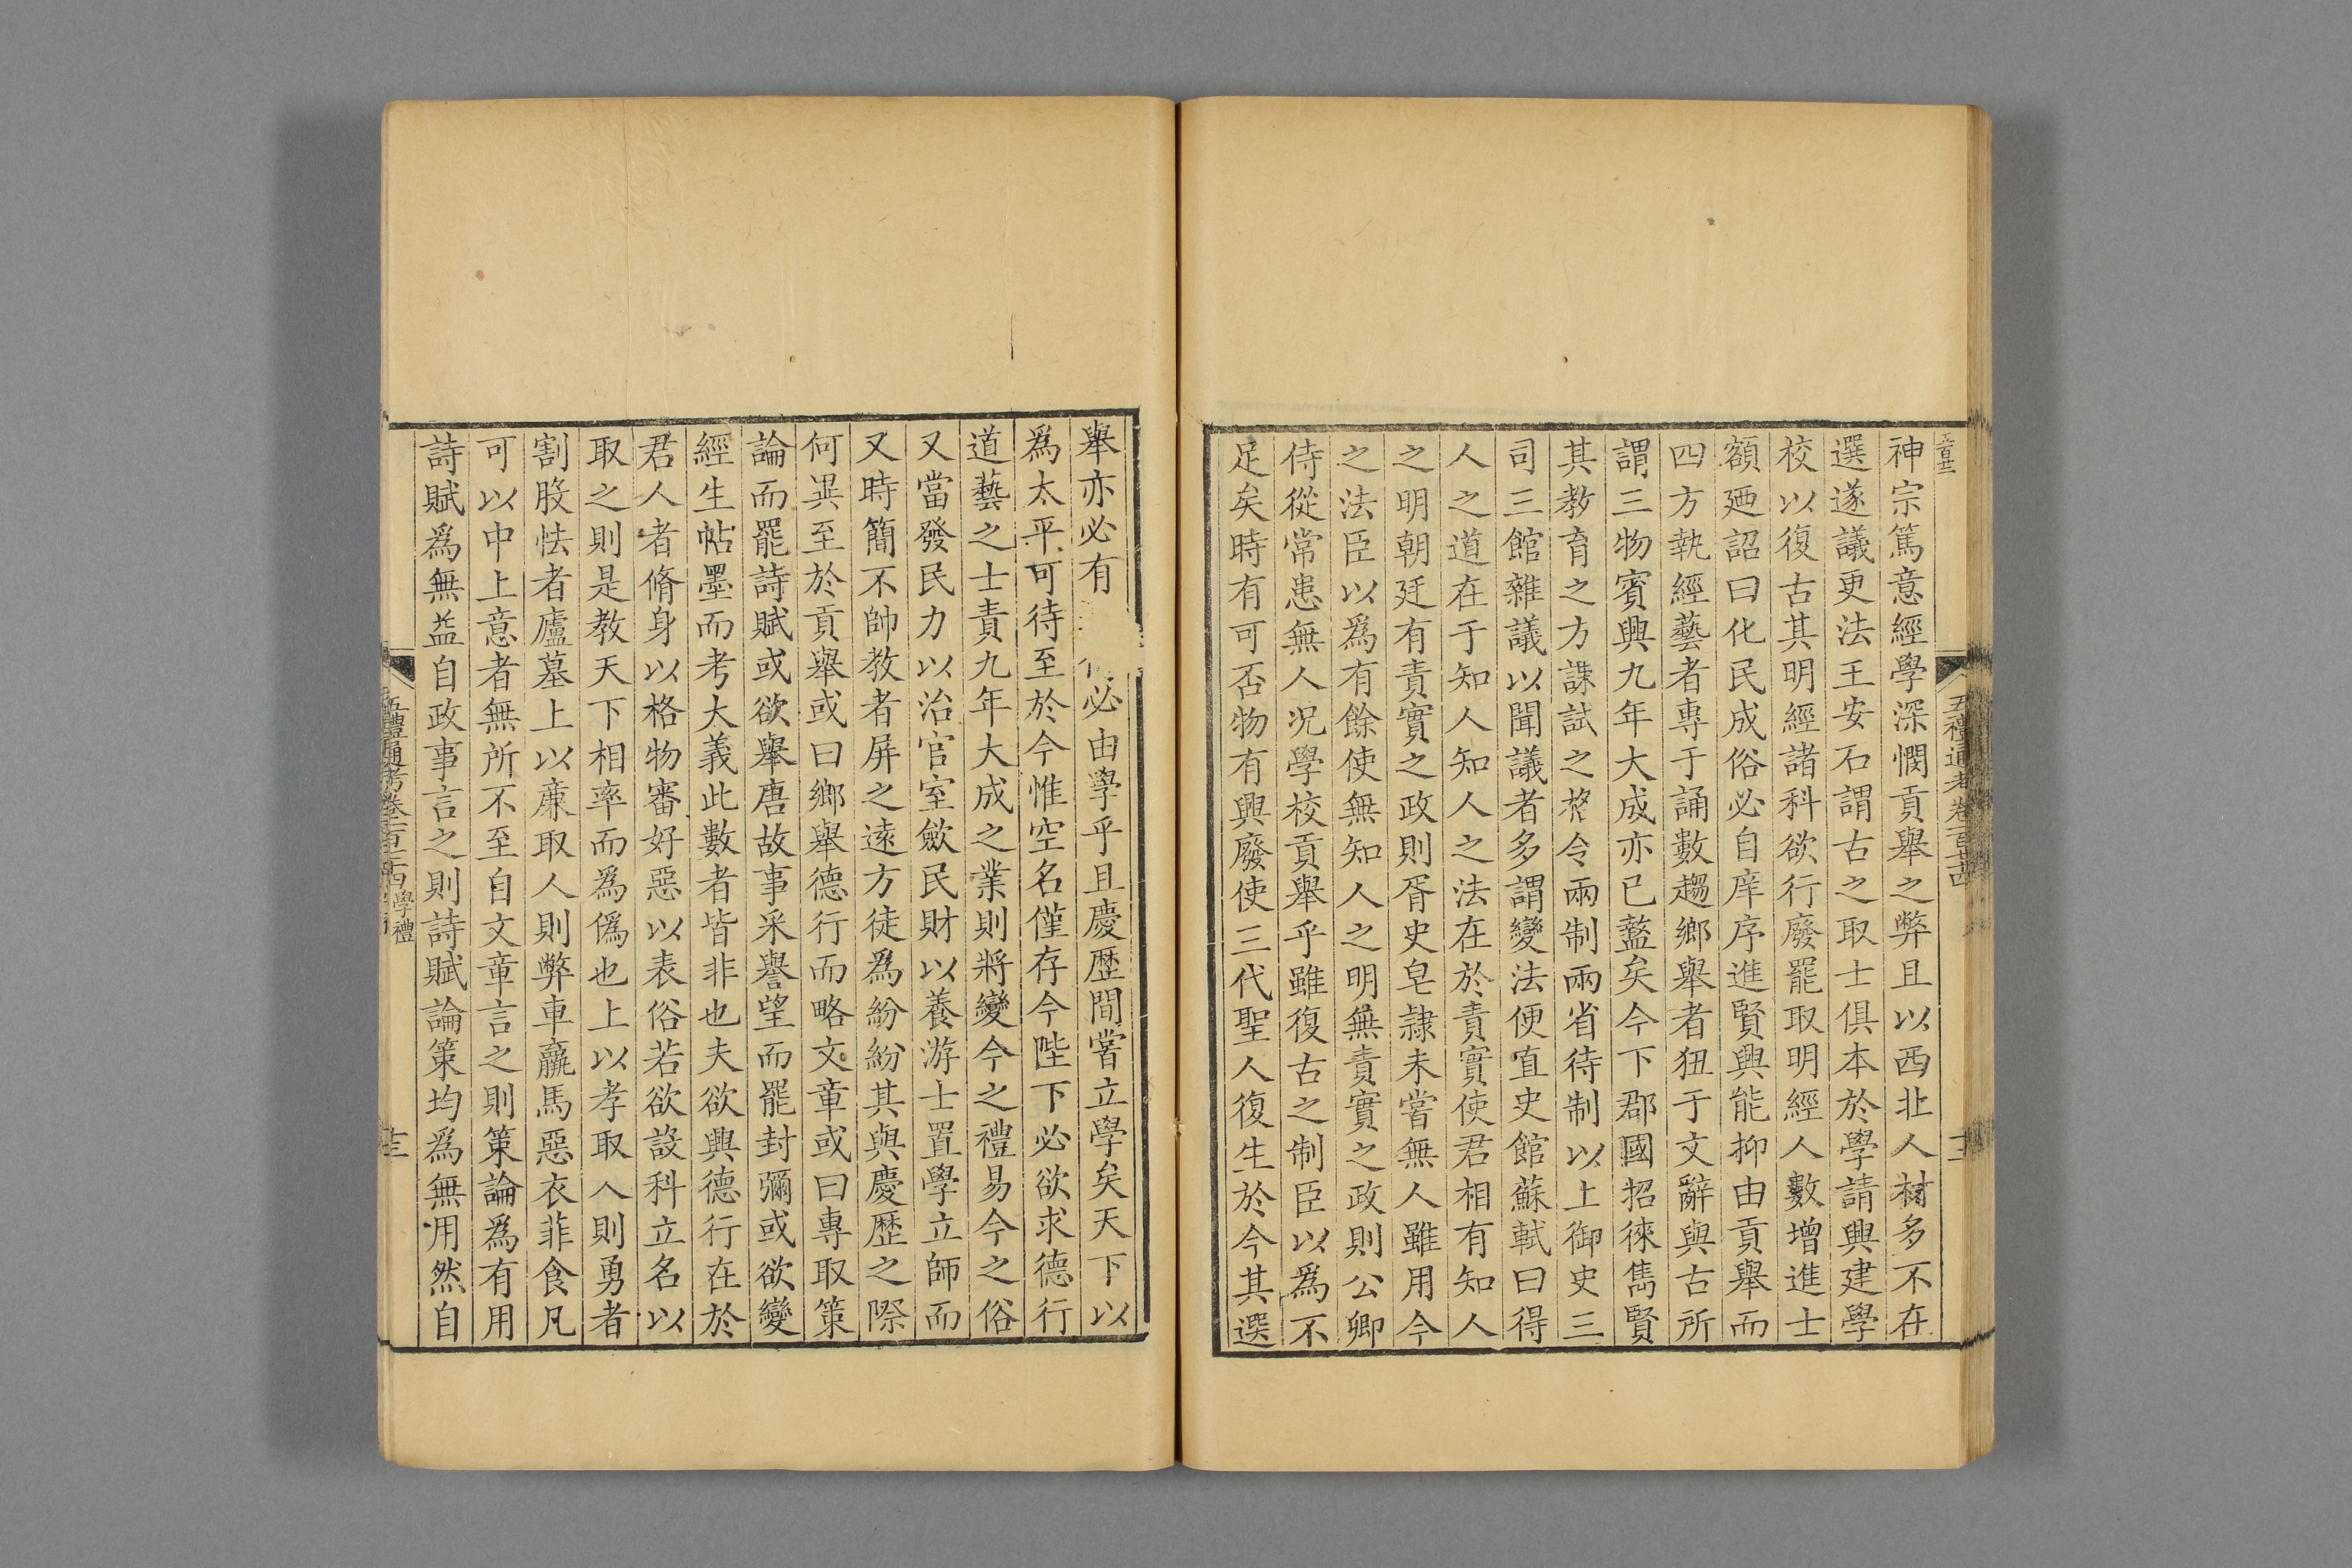 五禮通考卷一百七十四
神宗篤意經學深憫貢舉之弊且以西北人材多不在
選遂議更法王安石謂古之取士俱本於學請興建學
校以復古其明經諸科欲行廢罷取明經人數增進士
額廼詔曰化民成俗必自庠序進賢興能抑由貢舉而
四方執經藝者專于誦數趨鄉舉者狃于文辭與古所
謂三物賓興九年大成亦已盭矣今下郡國招徠雋賢
其教育之方課試之格令兩制兩省待制以上御史三
司三館雜議以聞議者多謂變法便直史館蘇軾曰得
人之道在于知人知人之法在於責實使君相有知人
之明朝廷有責實之政則胥史皂隸未嘗無人雖用今
之法臣以爲有餘使無知人之明無責實之政則公卿
侍從常患無人况學校貢舉乎雖復古之制臣以爲不
足矣時有可否物有興廢使三代聖人復生於今其選
舉亦必有必由學乎且慶歷間嘗立學矣天下以
爲太平可待至於今惟空名僅存今陛下必欲求德行
道藝之士責九年大成之業則將變今之禮易今之俗
又當發民力以治官室斂民財以養游士置學立師而
又時簡不帥教者屏之逺方徒爲紛紛其與慶歷之際
何異至於貢舉或曰鄉舉德行而略文章或曰專取策
論而罷詩賦或欲舉唐故事采譽望而罷封彌或欲變
經生帖墨而考大義此數者皆非也夫欲興德行在於
君人者脩身以格物審好惡以表俗若欲設科立名以
取之則是教天下相率而爲僞也上以孝取人則勇者
割股怯者廬墓上以亷取人則弊車羸馬惡衣菲食凡
可以中上意者無所不至自文章言之則策論爲有用
詩賦爲無益自政事言之則詩賦論策均爲無用然自
五禮通考卷一百七十四 學禮
十三